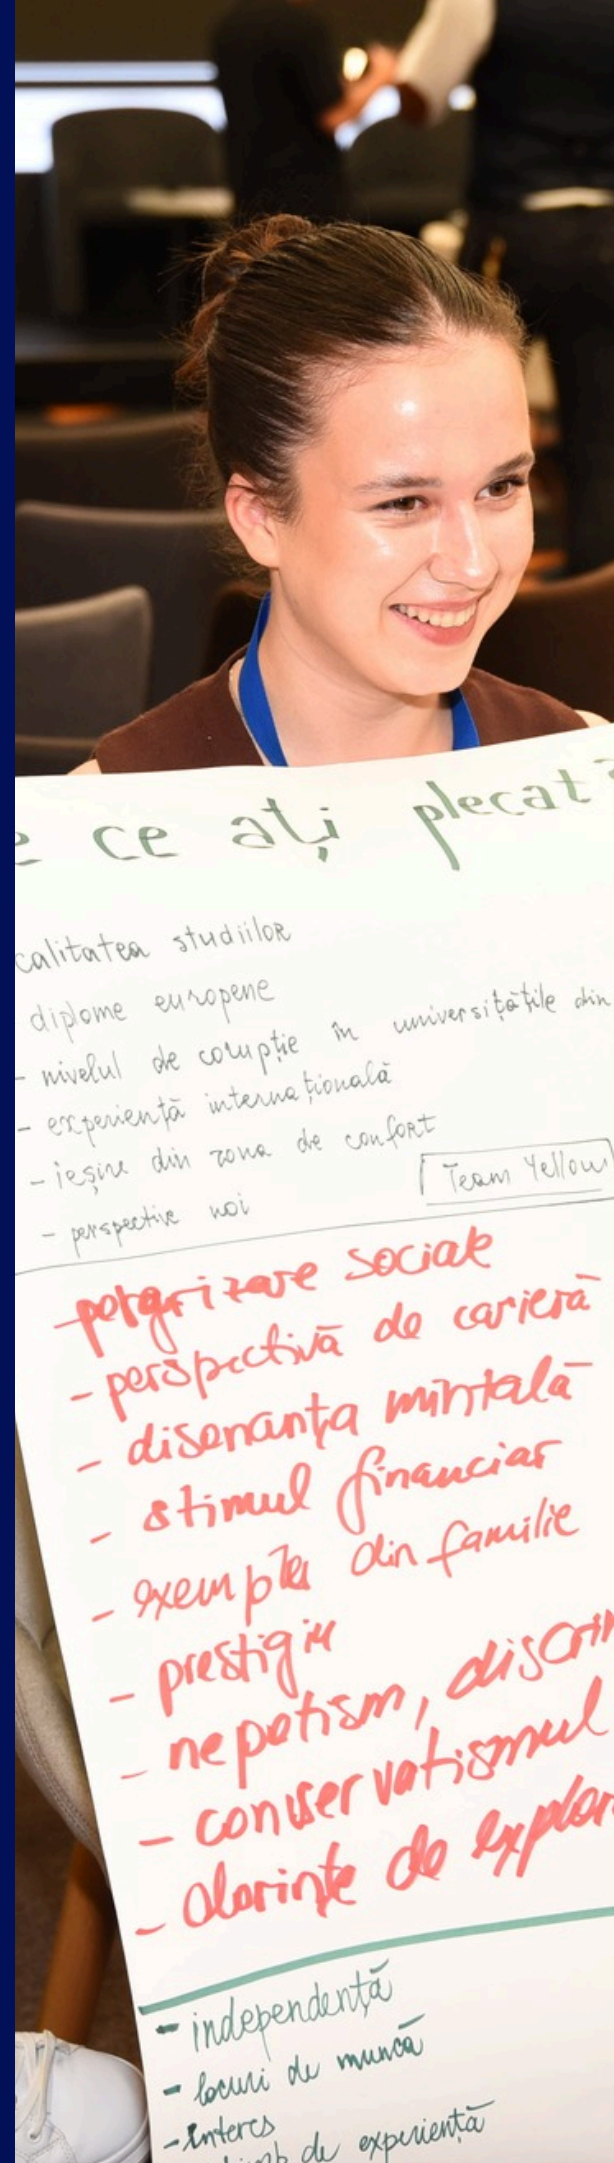 e ce ați plecat?
calitatea studiilor
diplome europene
- nivelul de corupție în universitățile din
- experiență internațională
- ieșire din zona de confort
- perspective noi
Team Yellow
sociale
- perspectivă de carieră
- stimul financiar
- exemple din familie
- prestigiu
- nepotism, discrim
- conservatismul
- de explor
- independență
- locuri de muncă
- interes
de experiență